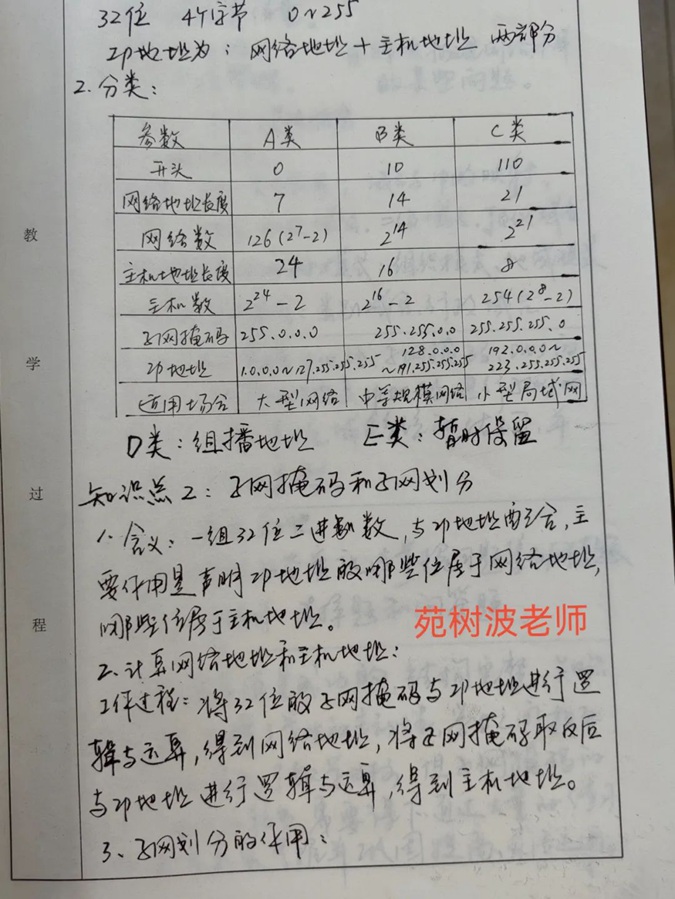 32位 4个字节 0~255
IP地址为：网络地址+主机地址 两部分
2.分类：
参数 A类 B类 C类
开头 0 10 110
网络地址长度 7 14 21
网络数 126(2^7-2) 2^14 2^21
主机地址长度 24 16 8
主机数 2^24-2 2^16-2 254(2^8-2)
子网掩码 255.0.0.0 255.255.0.0 255.255.255.0
IP地址 1.0.0.0~127.255.255.255 128.0.0.0~191.255.255.255 192.0.0.0~223.255.255.255
适用场合 大型网络 中等规模网络 小型局域网
D类：组播地址 E类：暂时保留
知识点2：子网掩码和子网划分
1、含义：一组32位二进制数，与IP地址配合，主
要作用是声明IP地址的哪些位属于网络地址，
哪些位属于主机地址。
苑树波老师
2.计算网络地址和主机地址：
工作过程：将32位的子网掩码与IP地址进行逻
辑与运算，得到网络地址，将子网掩码取反后
与IP地址进行逻辑与运算，得到主机地址。
3、子网划分的作用：
教
学
过
程